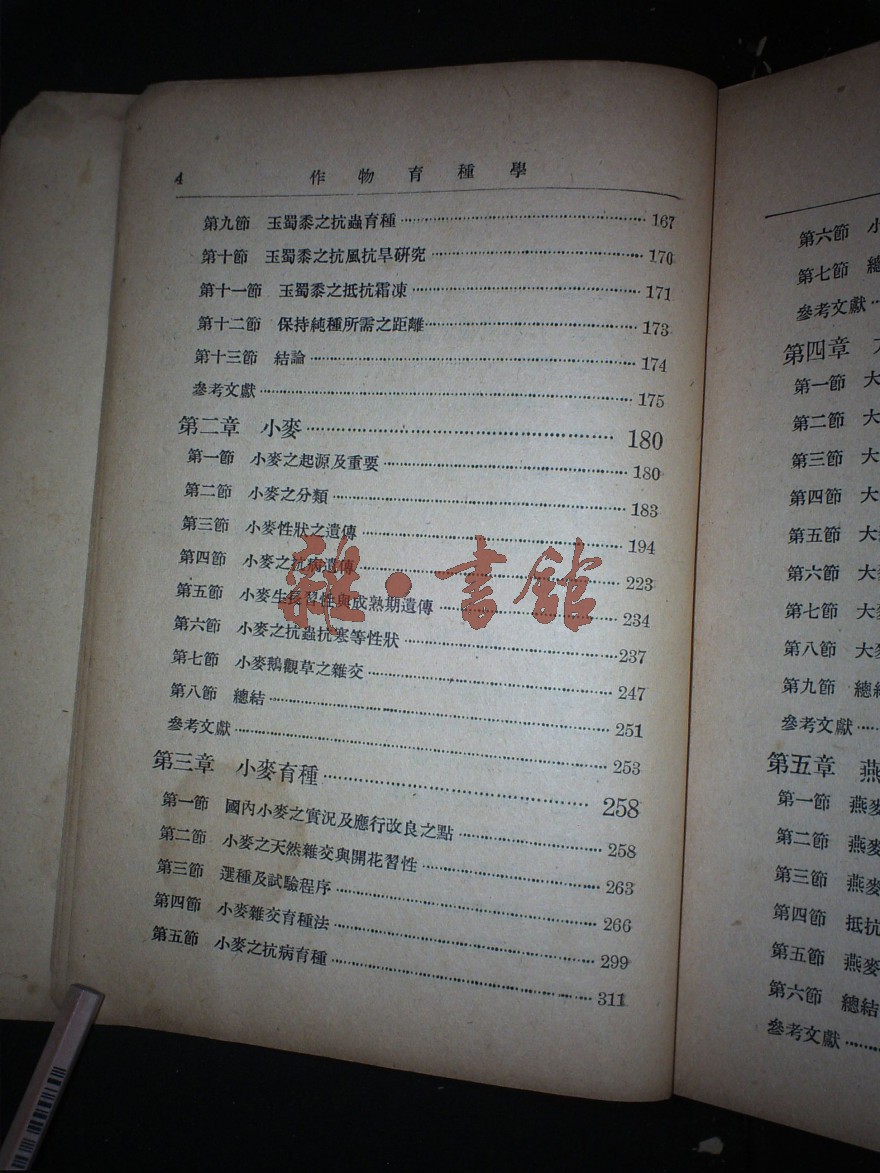 4 作物育種學
第九節 玉蜀黍之抗蟲育種 167
第十節 玉蜀黍之抗風抗旱研究 170
第十一節 玉蜀黍之抵抗霜凍 171
第十二節 保持純種所需之距離 173
第十三節 結論 174
參考文獻 175
第二章 小麥 180
第一節 小麥之起源及重要 180
第二節 小麥之分類 183
第三節 小麥性狀之遺傳 194
第四節 小麥之抗病遺傳 223
第五節 小麥生長習性與成熟期遺傳 234
第六節 小麥之抗蟲抗寒等性狀 237
第七節 小麥鵝觀草之雜交 247
第八節 總結 251
參考文獻 253
第三章 小麥育種 258
第一節 國內小麥之實況及應行改良之點 258
第二節 小麥之天然雜交與開花習性 263
第三節 選種及試驗程序 266
第四節 小麥雜交育種法 299
第五節 小麥之抗病育種 311
雜·書館
第六節 小
第七節 總
參考文獻
第四章
第一節 大
第二節 大
第三節 大
第四節 大
第五節 大麥
第六節 大麥
第七節 大麥
第八節 大麥
第九節 總結
參考文獻
第五章 燕
第一節 燕麥
第二節 燕麥
第三節 燕麥
第四節 抵抗
第五節 燕麥
第六節 總結
參考文獻